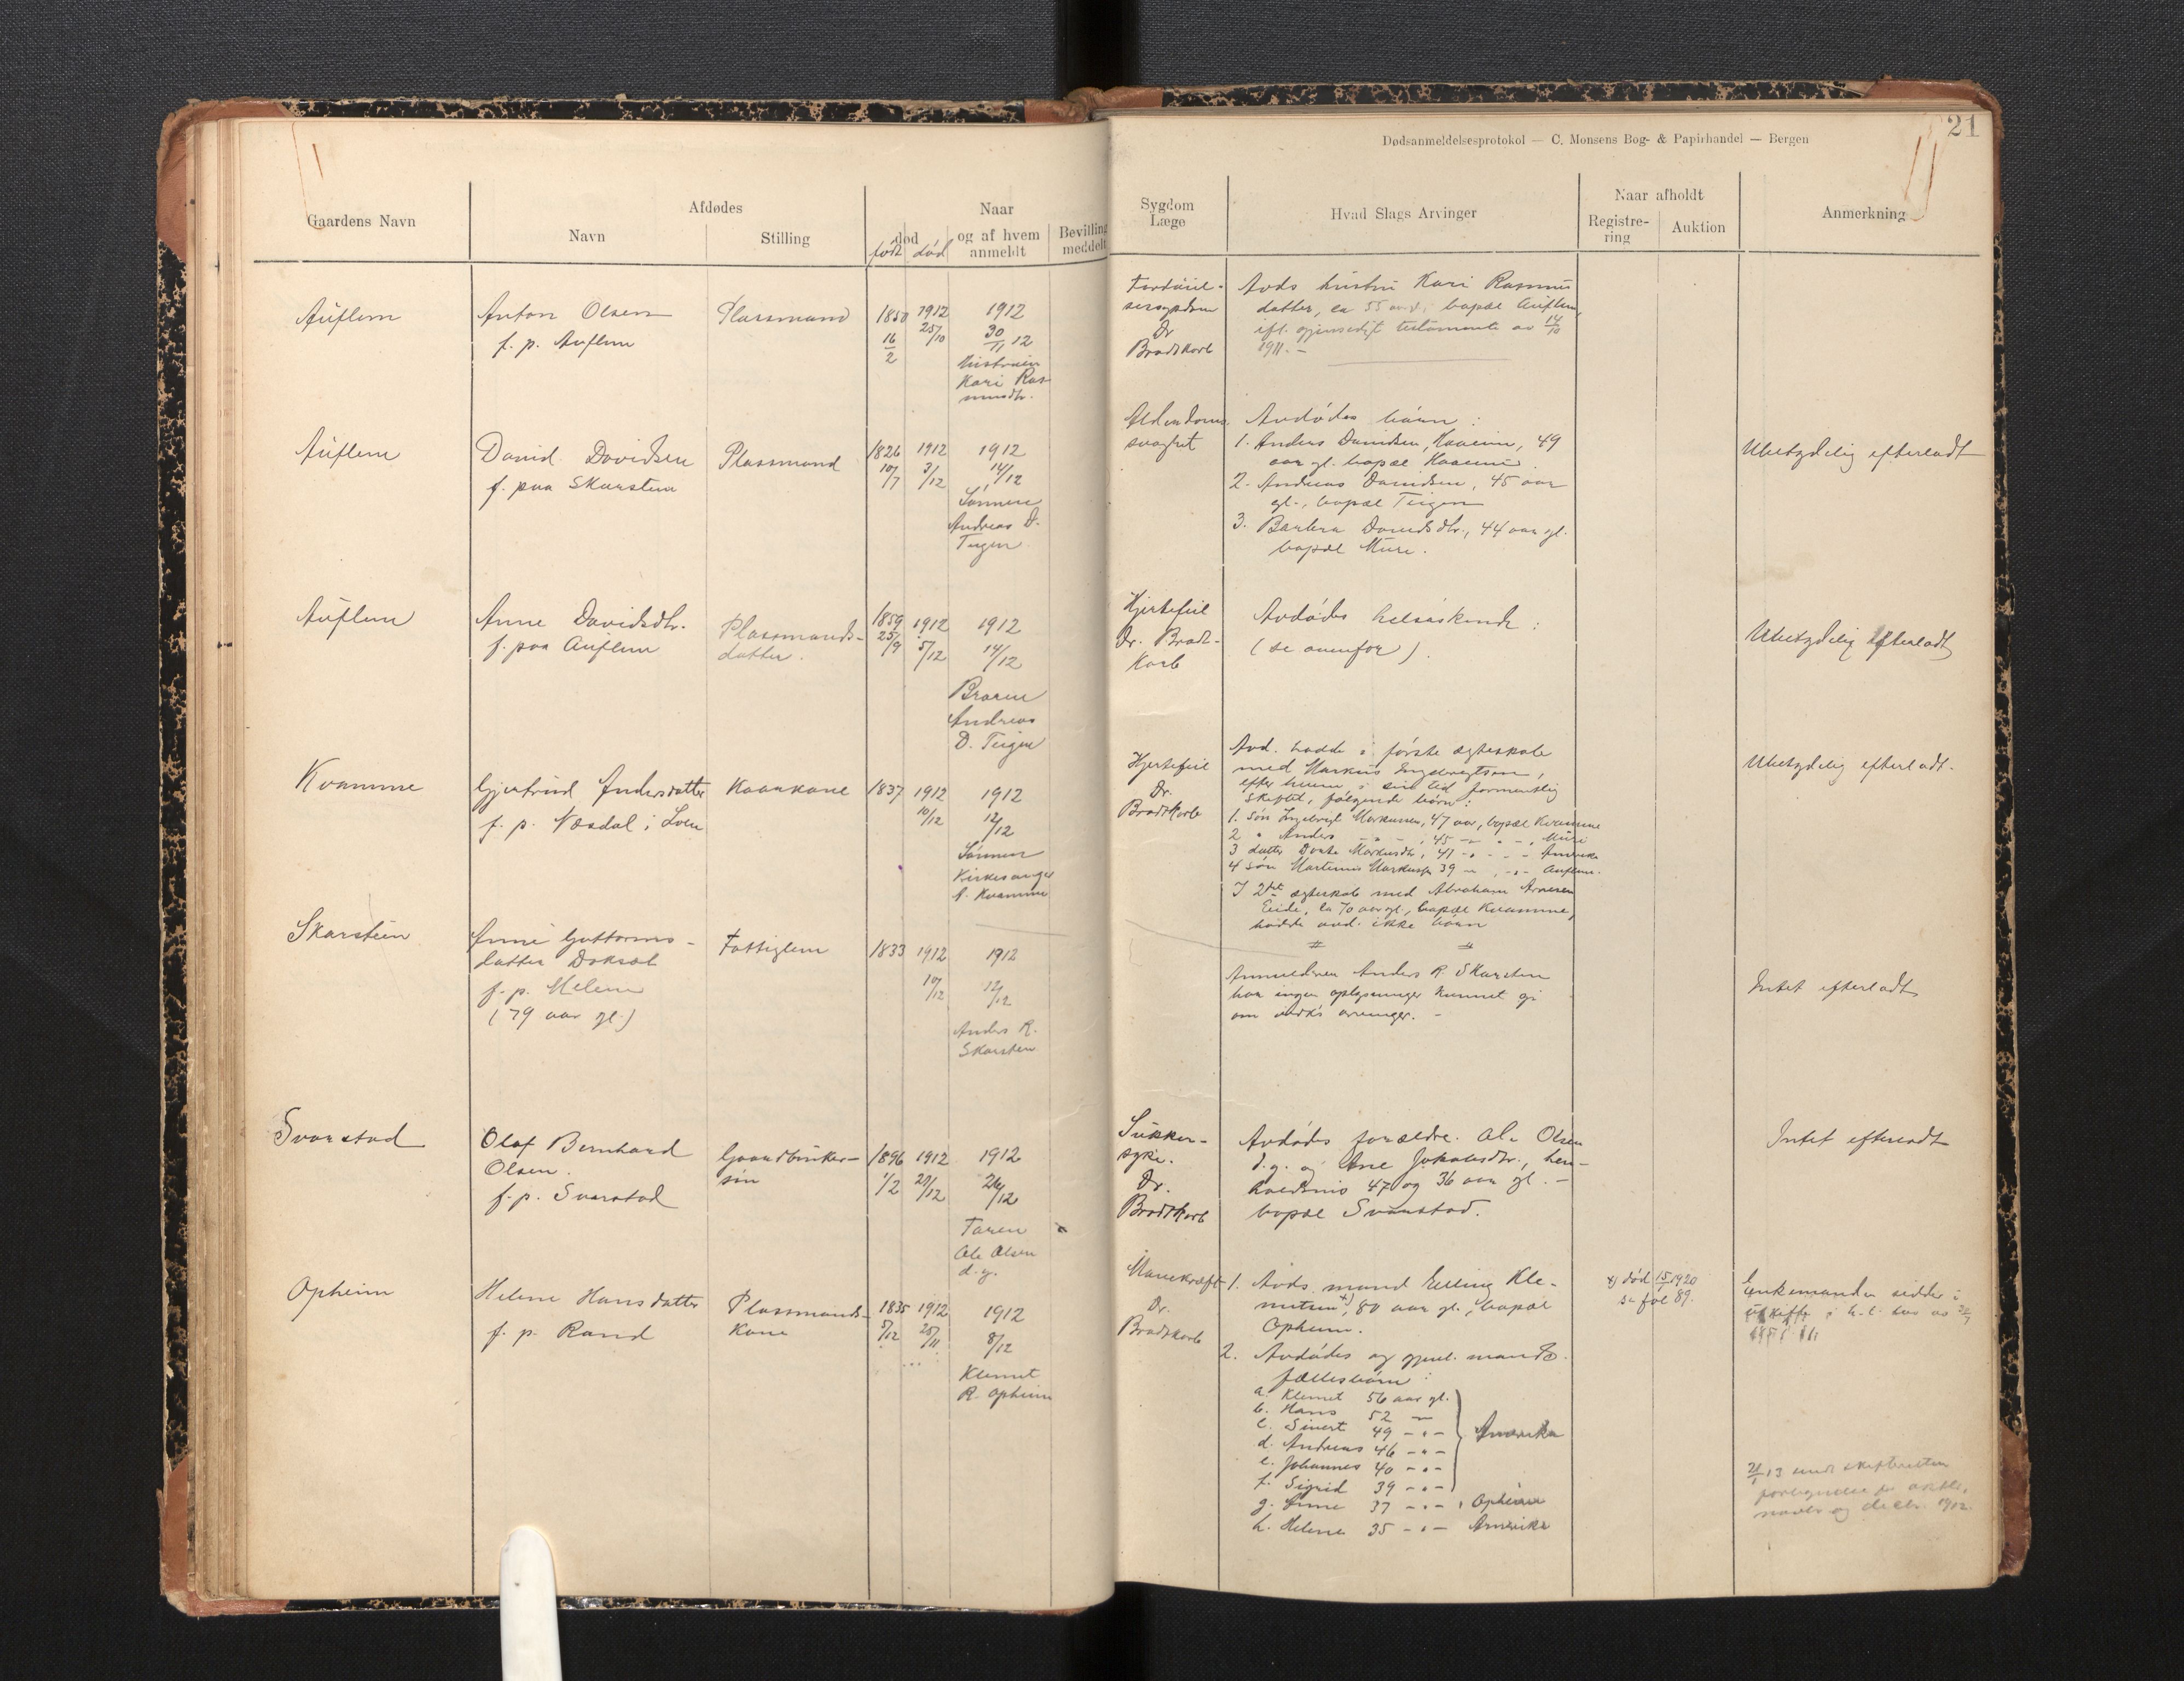 21
Dødsanmeldelsesprotokol — C. Monsens Bog- & Papirhandel — Bergen
Gaardens Navn
Afdødes
Navn
Stilling
Naar
død
født død
og af hvem
anmeldt
Bevilling
meddelt
Sygdom
Læge
Hvad Slags Arvinger
Naar afholdt
Registre-
ring
Auktion
Anmerkning
Auflem
Anton Olsen
f. p. Auflem
Plassmand
1850
16
2
1912
25/10
1912
30
11 12
Hustruen
Kari Ras-
musdtr.
Dr
Bradtkorb
Avds hustru Kari Rasmus
datter, ca 55 aar, bopæl Auflem,
ifl. gjensidigt testamente av 14/10
1911. —
Auflem
David Davidsen
f. paa Skarsten
Plassmand
1826
10/7
1912
3/12
1912
14/12
Sønnen
Andreas D.
Teigen
Alderdoms
svaghet
Avdødes børn :
1. Anders Davidsen, 49
aar gl. bopæl
2. Andreas Davidsen, 45 aar
gl., bopæl Teigen
3. Barbra Davidsdtr., 44 aar gl.
bopæl Muri.
Ubetydelig efterladt
Auflem
Anne Davidsdtr.
f. paa Auflem
Plassmands-
datter.
1859
25/9
1912
5/12
1912
14/12
Broren
Andreas
D. Teigen
Hjertefeil
Dr. Bradt-
korb
Avdødes helsøskende :
(se ovenfor).
Ubetydelig efterladt
Kvamme
Gjertrud Andersdatter
f. p. Næsdal i Loen
Kaarkone
1837
1912
10/12
1912
12/12
Sønnen
Kirkesanger
Kvamme
Hjertefeil
Dr.
Bradtkorb
Avd. hadde i første egteskab
med Markus Ingebrigtsen,
efter hvem i sin tid formentlig
skiftet, følgende børn :
1. søn Ingebrigt Markussen, 47 aar, bopæl Kvamme
2 " Anders - " - , 45 - " - , Muri
3 datter Dorte Markusdtr, 41 - " - - Amerika
4 søn Martinus Markussen 39 - " - Auflem.
I 2det egteskab med Abraham Arnesen
Eide, ca 70 aar gl., bopæl Kvamme,
hadde avd. ikke børn
Ubetydelig efterladt.
Skarstein
Anne Guttorms-
datter
f. p. Melem
(79 aar gl.)
Fattiglem
1833
1912
10/12
1912
12/12
Anders R.
Skarsten
Anmelderen Anders R. Skarsten
har ingen oplysninger kunnet gi
om avdøs arvinger. —
Intet efterladt
Svarstad
Olaf Bernhard
Olsen.
f. p. Svarstad
Gaardbruker-
søn
1896
1/2
1912
20/12
1912
26/12
Faren
Ole Olsen
d. y.
Sukker-
syke.
Dr.
Bradtkorb
Avdødes forældre. Ole Olsen
d. y. og Ane Jakobsdtr., hen-
holdsvis 47 og 36 aar gl. —
bopæl Svarstad.
Intet efterladt
Opheim
Helene Hansdatter
f. p. Rand
Plassmands-
kone
1835
5/12
1912
25/11
1912
8/12
Klemet
R. Opheim
Mavekræft
Dr.
Bradtkorb
1. Avds mand Elling Kle-
metsen x), 80 aar gl., bopæl
Opheim.
2. Avdødes og gjenl. mands
fællesbørn :
a. Klemet 56 aar gl.
b. Hans 52 —
c. Sivert 49 - " -
d. Andreas 46 - " -
e. Johannes 40 - " -
f. Sigrid 39 - " -
Amerika
g. Anne 37 - " - , Opheim
h. Helene 35 - " - Amerika
x) død 15/1 1920
se fol 89.
Enkemanden sidder i
uskifte i h. t. lov av
21/1 13 sendt skifteretten
fortegnelse for oktbr,
novbr og decbr. 1912.